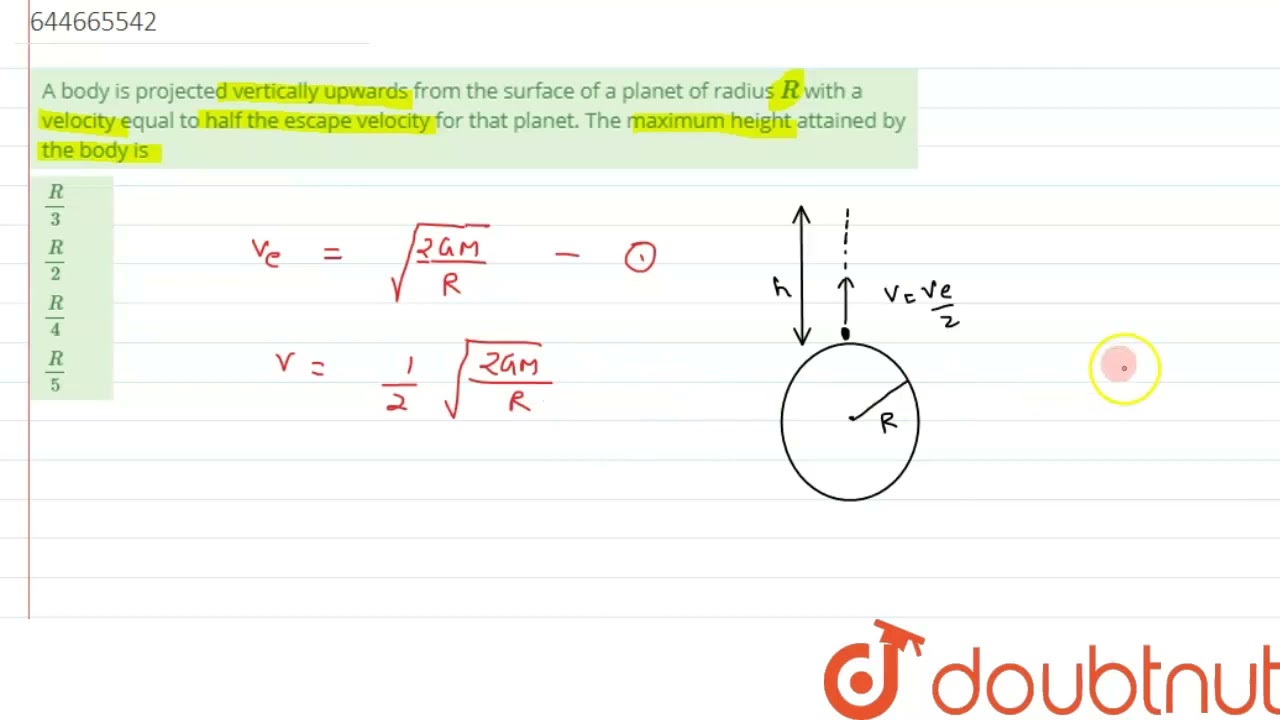 644665542
A body is projected vertically upwards from the surface of a planet of radius R with a
velocity equal to half the escape velocity for that planet. The maximum height attained by
the body is
R/3
R/2
R/4
R/5
ve = √(2GM/R) - ①
v = 1/2 √(2GM/R)
h
v = ve/2
R
doubtnut